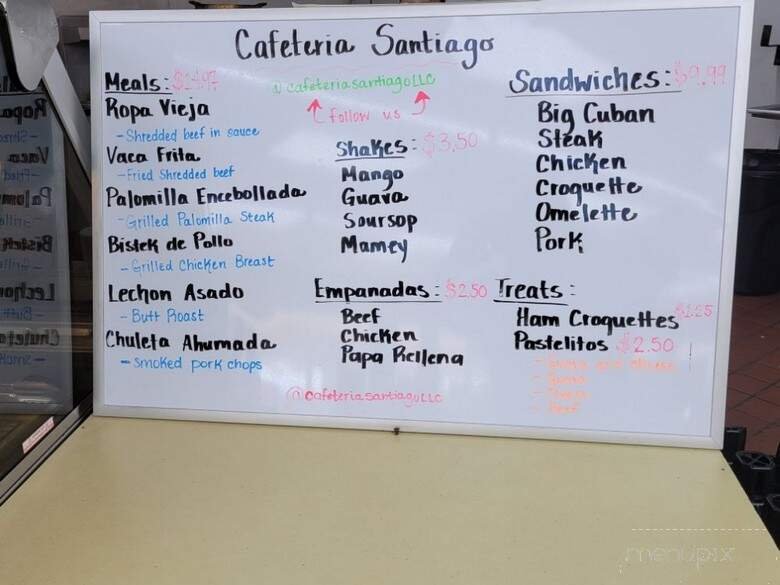 Cafeteria Santiago
@cafeteriasantiagoLLC
follow us
Meals: $14.97
Ropa Vieja
- Shredded beef in sauce
Vaca Frita
- Fried Shredded beef
Palomilla Encebollada
- Grilled Palomilla Steak
Bistek de Pollo
- Grilled Chicken Breast
Lechon Asado
- Butt Roast
Chuleta Ahumada
- Smoked pork chops
Shakes: $3.50
Mango
Guava
Soursop
Mamey
Empanadas: $2.50
Beef
Chicken
Papa Rellena
@cafeteriasantiagoLLC
Sandwiches: $9.99
Big Cuban
Steak
Chicken
Croquette
Omelette
Pork
Treats:
Ham Croquettes $1.25
Pastelitos $2.50
- Guava and cheese
- Guava
- Cheese
- Beef
menupix